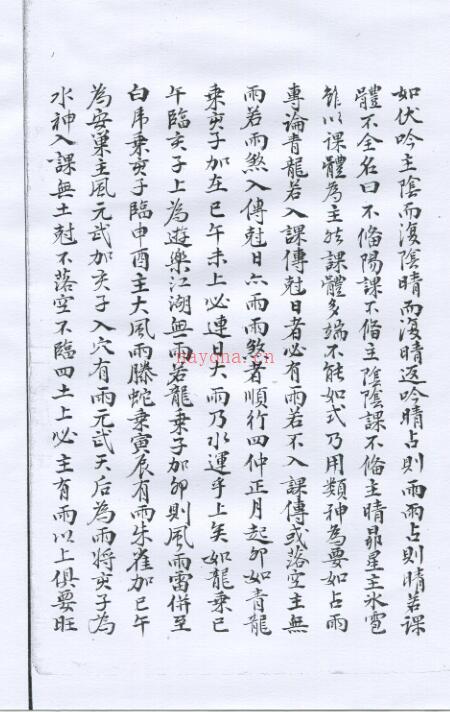 如伏吟主陰而復陰晴而復晴返吟晴占則雨雨占則晴若課
體不全名曰不俻陽課不俻主陰陰課不俻主晴昴星主氷雹
雖以課體為主然課體多端不能如式乃用類神為要如占雨
專論青龍若入課傳尅日者必有雨若不入課傳或落空主無
雨若雨煞入傳尅日亦雨雨煞者順行四仲正月起卯如青龍
乘亥子加在巳午未上必連日大雨乃水運乎上矣如龍乘巳
午臨亥子上為遊樂江湖無雨若龍乘子加卯則風雨雷併至
白虎乘亥子臨申酉主大風雨螣蛇乘寅辰有雨朱雀加巳午
為安巢主風元武加亥子入穴有雨元武天后為雨將亥子為
水神入課無土尅不落空不臨四土上必主有雨以上俱要旺
nayona.cn